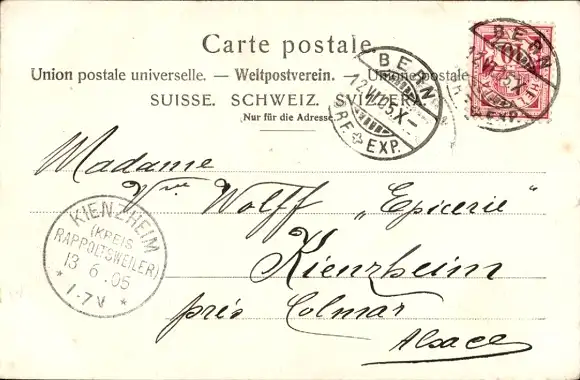 Carte postale.
Union postale universelle. — Weltpostverein. — Unione postale
SUISSE. SCHWEIZ. SVIZZERA.
Nur für die Adresse.
BERN
12.VI.05.X–
BRF EXP.
BERN
12.VI.05.X–
EXP.
10
Madame
Vve Wolff „Epicerie“
Kienzheim
près Colmar
Alsace
KIENZHEIM
(KREIS
RAPPOLTSWEILER)
13 6 .05
* 1-7V *